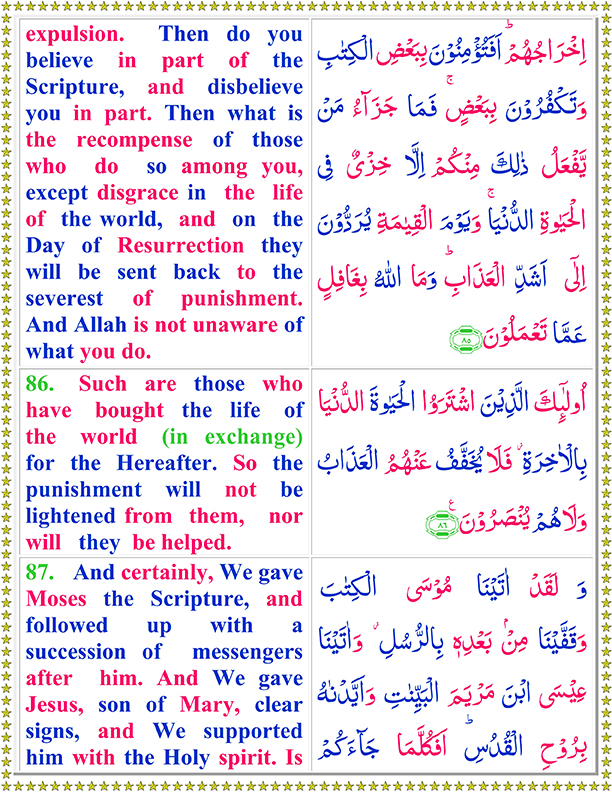 expulsion. Then do you
believe in part of the
Scripture, and disbelieve
you in part. Then what is
the recompense of those
who do so among you,
except disgrace in the life
of the world, and on the
Day of Resurrection they
will be sent back to the
severest of punishment.
And Allah is not unaware of
what you do.
اِخْرَاجُهُمْ ؕ اَفَتُؤْمِنُوْنَ بِبَعْضِ الْكِتٰبِ
وَتَكْفُرُوْنَ بِبَعْضٍ ۚ فَمَا جَزَآءُ مَنْ
يَّفْعَلُ ذٰلِكَ مِنْكُمْ اِلَّا خِزْىٌ فِى
الْحَيٰوةِ الدُّنْيَا ۚ وَيَوْمَ الْقِيٰمَةِ يُرَدُّوْنَ
اِلٰٓى اَشَدِّ الْعَذَابِ ؕ وَمَا اللّٰهُ بِغَافِلٍ
عَمَّا تَعْمَلُوْنَ ٨٥
86. Such are those who
have bought the life of
the world (in exchange)
for the Hereafter. So the
punishment will not be
lightened from them, nor
will they be helped.
اُولٰٓئِكَ الَّذِيْنَ اشْتَرَوُا الْحَيٰوةَ الدُّنْيَا
بِالْاٰخِرَةِ ۫ فَلَا يُخَفَّفُ عَنْهُمُ الْعَذَابُ
وَلَا هُمْ يُنْصَرُوْنَ ۧ ٨٦
87. And certainly, We gave
Moses the Scripture, and
followed up with a
succession of messengers
after him. And We gave
Jesus, son of Mary, clear
signs, and We supported
him with the Holy spirit. Is
وَ لَقَدْ اٰتَيْنَا مُوْسَى الْكِتٰبَ
وَقَفَّيْنَا مِنْۢ بَعْدِهٖ بِالرُّسُلِ ۫ وَاٰتَيْنَا
عِيْسَى ابْنَ مَرْيَمَ الْبَيِّنٰتِ وَاَيَّدْنٰهُ
بِرُوْحِ الْقُدُسِ ؕ اَفَكُلَّمَا جَآءَكُمْ